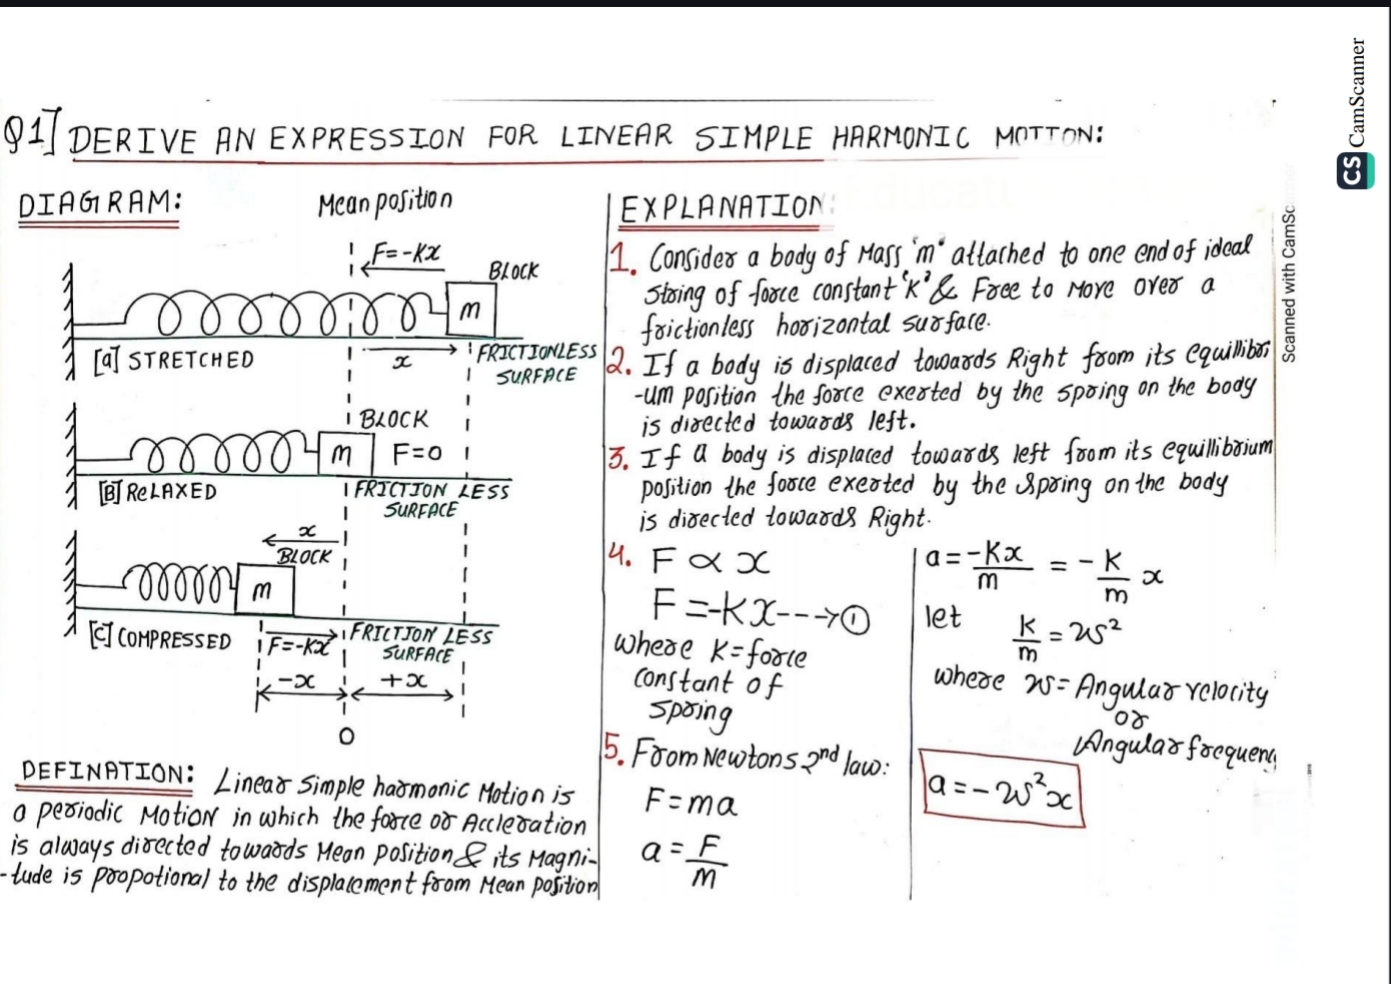 Q1] DERIVE AN EXPRESSION FOR LINEAR SIMPLE HARMONIC MOTION:
DIAGRAM:
Mean position
F=-Kx
BLOCK
m
[a] STRETCHED
x
FRICTIONLESS
SURFACE
BLOCK
m
F=0
[B] ReLAXED
FRICTION LESS
SURFACE
x
BLOCK
m
[C] COMPRESSED
F=-Kx
FRICTION LESS
SURFACE
-x
+x
O
DEFINATION: Linear Simple harmonic Motion is
a periodic Motion in which the force or Accleration
is always directed towards Mean position & its Magni-
-tude is propotional to the displacement from Mean position
EXPLANATION:
1. Consider a body of Mass 'm' attached to one end of ideal
string of force constant 'K' & Free to Move over a
frictionless horizontal surface.
2. If a body is displaced towards Right from its equillibri
-um position the force exerted by the spring on the body
is directed towards left.
3. If a body is displaced towards left from its equillibrium
position the force exerted by the spring on the body
is directed towards Right.
4. F ∝ x
F=-Kx---→①
where K=force
constant of
spring
5. From Newtons 2nd law:
F=ma
a=F/m
a=-Kx/m = -K/m x
let
K/m = ω²
where ω= Angular velocity
or
Angular frequency
a=-ω²x
Scanned with CamSc
CS CamScanner